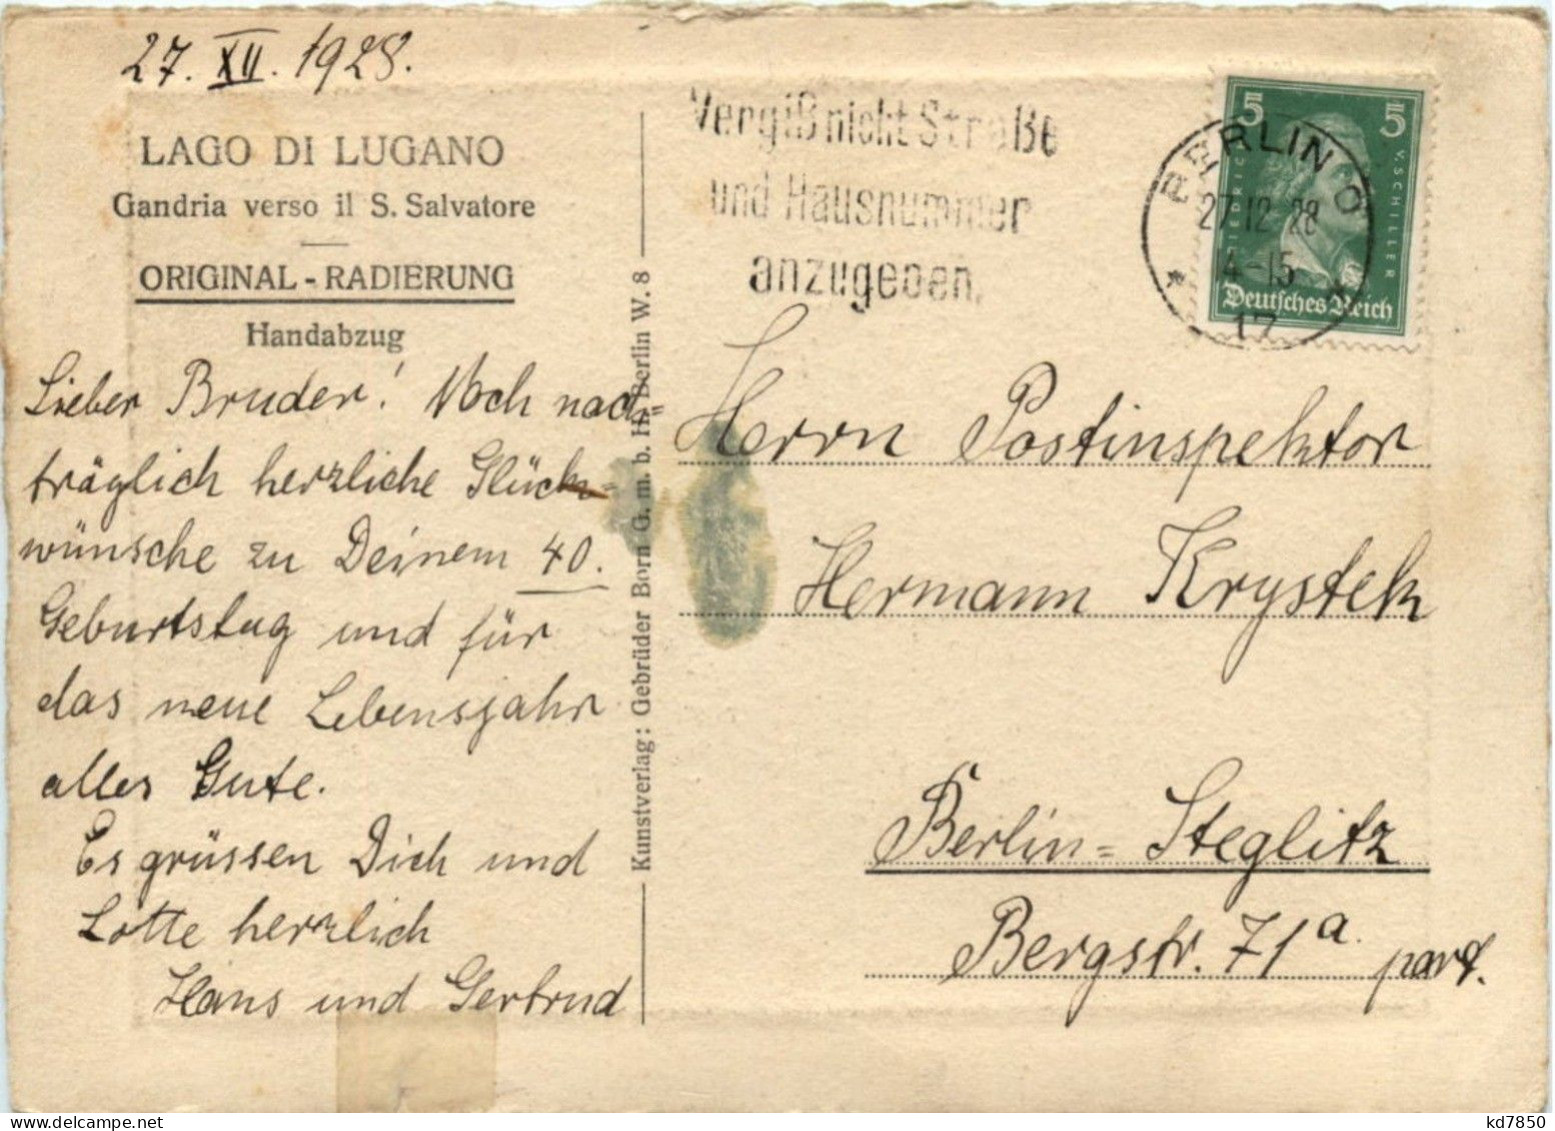 27. XII. 1928.
LAGO DI LUGANO
Gandria verso il S. Salvatore
ORIGINAL - RADIERUNG
Handabzug
Lieber Bruder! Noch nach„
träglich herzliche Glück-
wünsche zu Deinem 40.
Geburtstag und für
das neue Lebensjahr
alles Gute.
Es grüssen Dich und
Lotte herzlich
Hans und Gertrud
Kunstverlag: Gebrüder Born G. m. b. H., Berlin W. 8
Vergiß nicht Straße
und Hausnummer
anzugeben.
5 5
FRIEDRICH V. SCHILLER
Deutsches Reich
BERLIN O
27.12.28
4-15
* 17 *
Herrn Postinspektor
Hermann Krystek
Berlin=Steglitz
Bergstr. 71a part.
kd7850